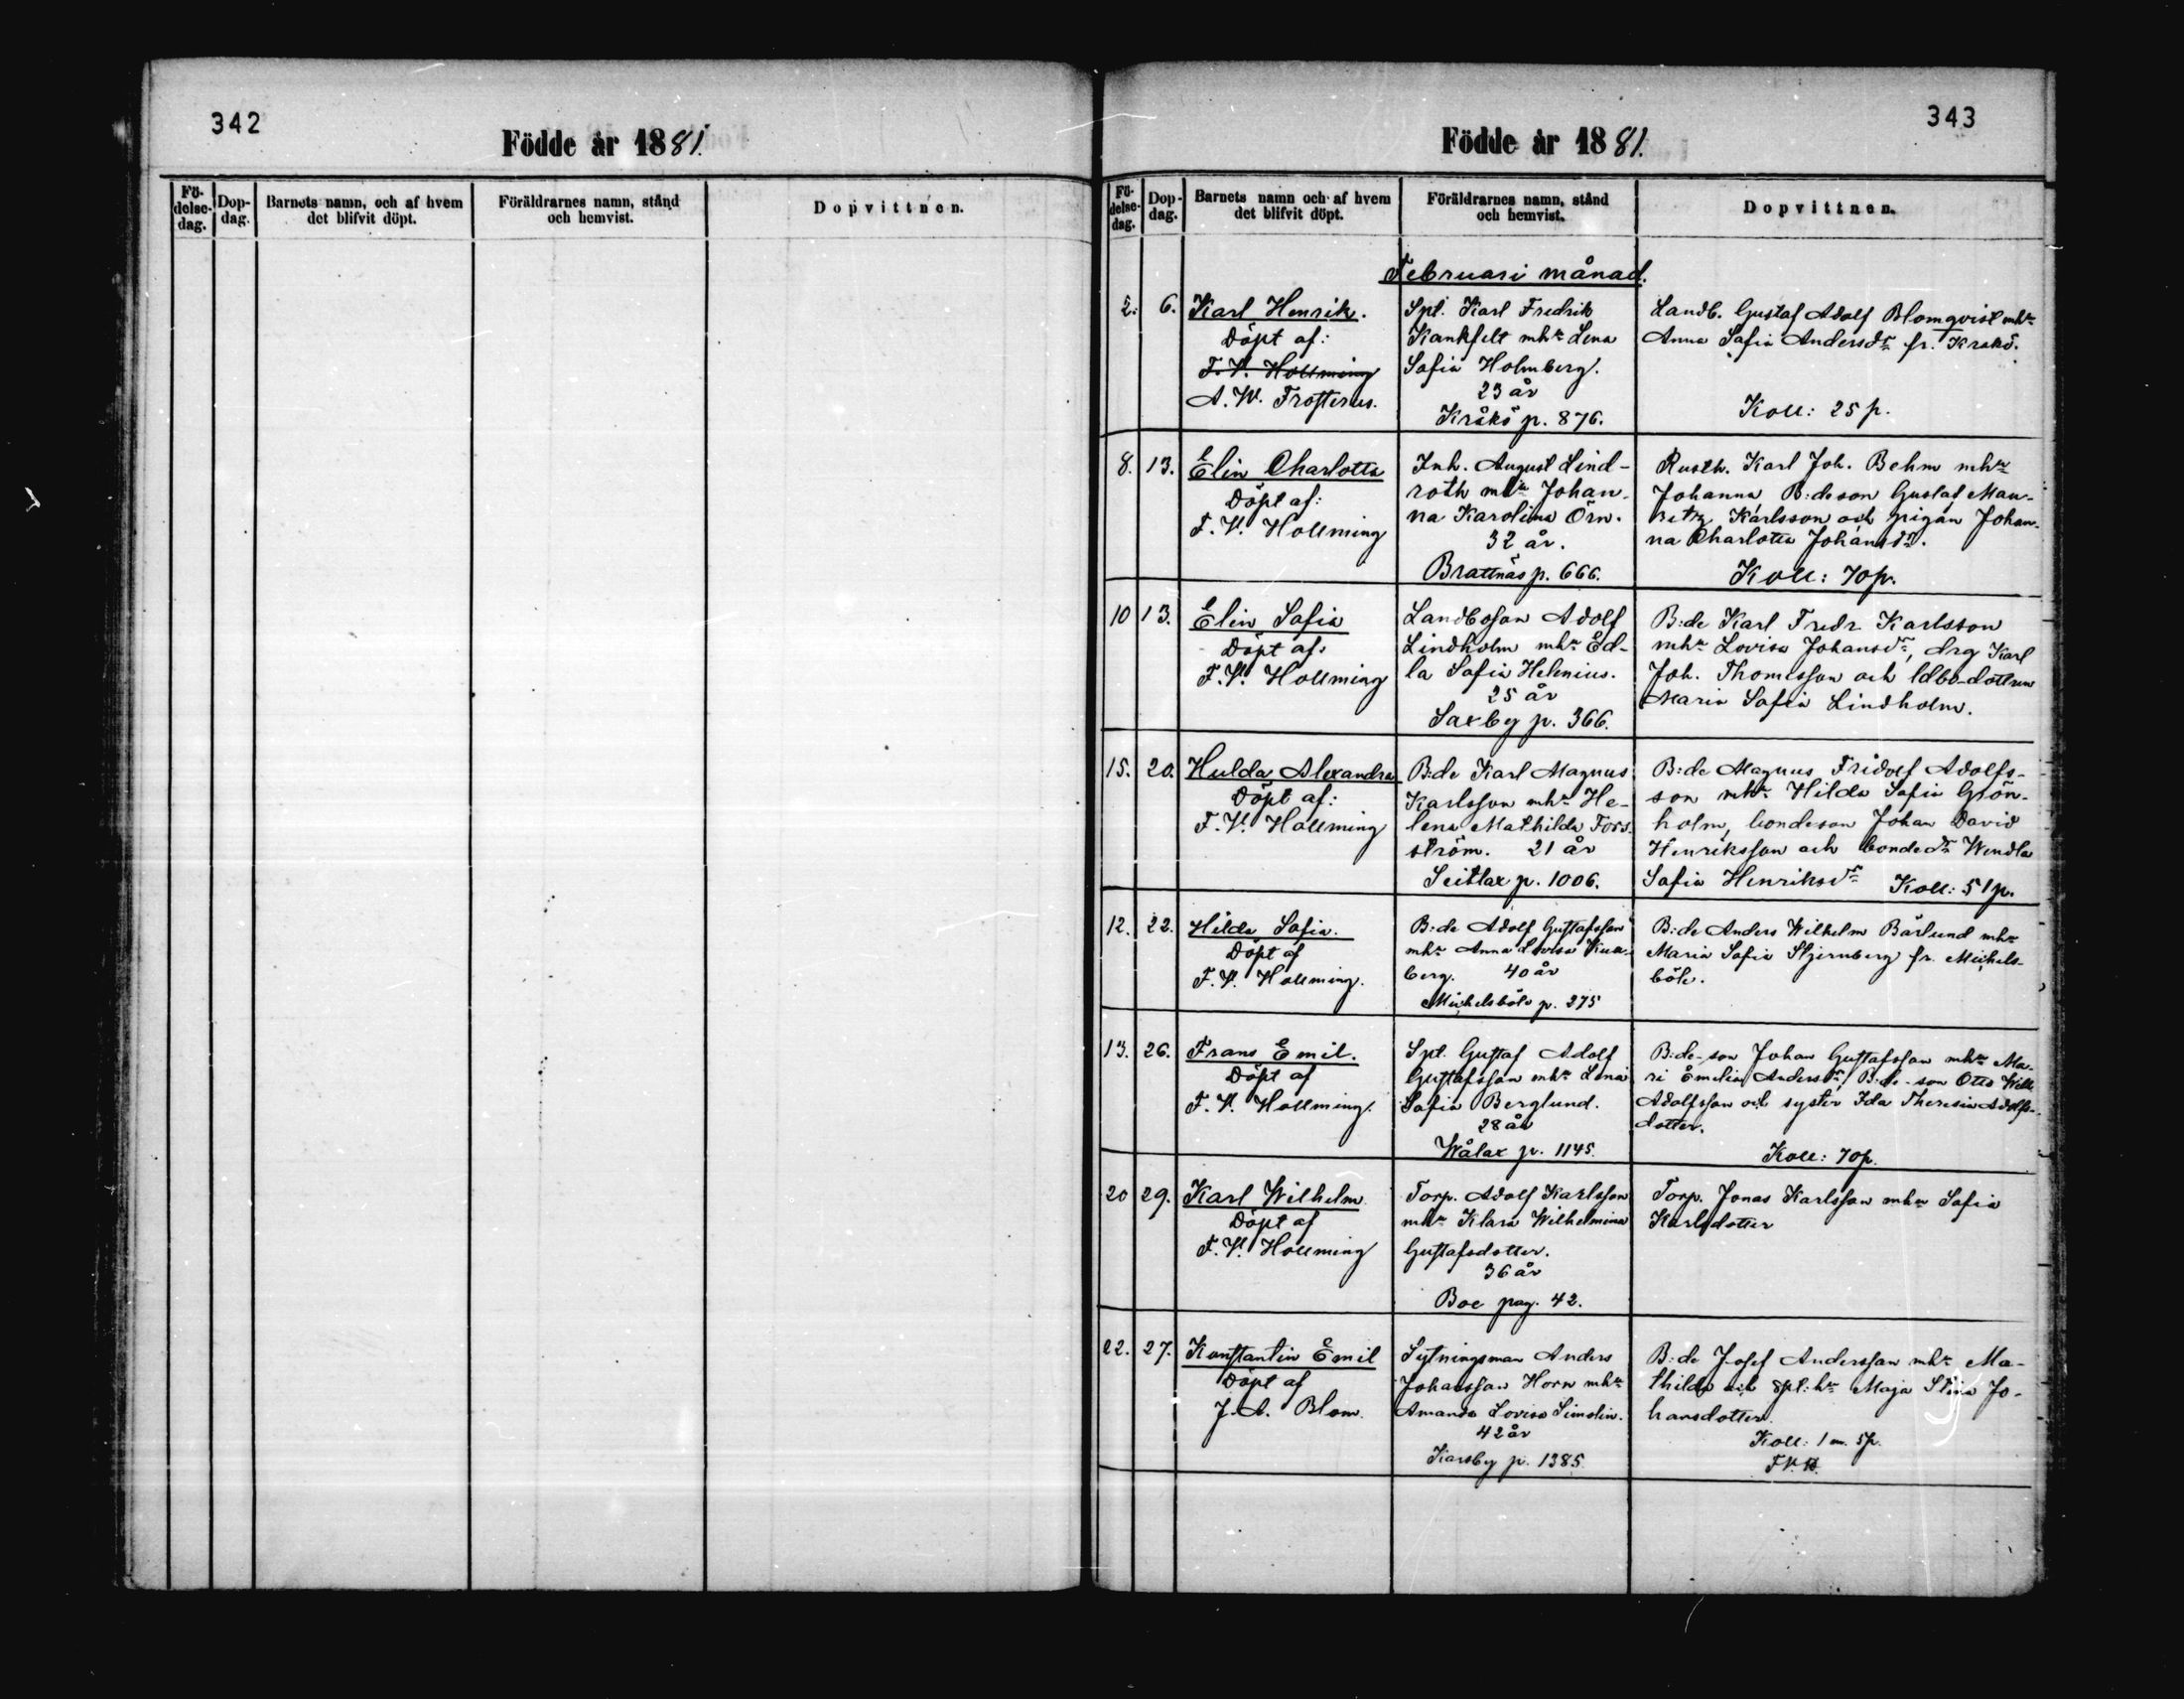 342
Födde år 1881.
Fö-
delse-
dag.
Dop-
dag.
Barnets namn, och af hvem
det blifvit döpt.
Föräldrarnes namn, stånd
och hemvist.
Dopvittnen.
343
Födde år 1881.
Fö-
delse-
dag.
Dop-
dag.
Barnets namn och af hvem
det blifvit döpt.
Föräldrarnes namn, stånd
och hemvist.
Dopvittnen.
Februari månad.
2. 6.
Karl Henrik.
Döpt af:
F. V. Hollming
A. W. Frosterus.
Spl. Karl Fredrik
Kankfelt mhr Lena
Sofia Holmberg.
23 år
Kråkö p. 876.
Landb. Gustaf Adolf Blomqvist mhr
Anna Sofia Andersdr fr. Kråkö.
Koll: 25 p.
8. 13.
Elin Charlotta
Döpt af:
F. V. Hollming
Inh. August Lind-
roth mhr Johan-
na Karolina Örn.
32 år.
Brattnäs p. 666.
Rusth. Karl Joh. Behm mhr
Johanna B:deson Gustaf Mau-
ritz Karlsson och pigan Johan-
na Charlotta Johansdr.
Koll: 70 p.
10 13.
Elin Sofia
Döpt af:
F. V. Hollming
Landboson Adolf
Lindholm mhr Ed-
la Sofia Helenius.
25 år
Saxby p. 366.
B:de Karl Fredr Karlsson
mhr Lovisa Johansdr, drg Karl
Joh. Thomesson och ldbo-dottren
Maria Sofia Lindholm.
15. 20.
Hulda Alexandra
Döpt af:
F. V. Hollming
B:de Karl Magnus
Karlsson mhr He-
lena Mathilda Fors-
ström. 21 år
Seitlax p. 1006.
B:de Magnus Fridolf Adolfs-
son mhr Hilda Sofia Grön-
holm, bondeson Johan David
Henriksson och bondedr Wendla
Sofia Henriksdr Koll: 51 p.
12. 22.
Hilda Sofia.
Döpt af
F. V. Hollming.
B:de Adolf Gustafsson
mhr Anna Lovisa
berg. 40 år
Mickelsböle p. 275
B:de Anders Wilhelm Bärlund mhr
Maria Sofia Stjernberg fr. Mickels-
böle.
13. 26.
Frans Emil.
Döpt af
F. V. Hollming.
Spl. Gustaf Adolf
Gustafsson mhr Lena
Sofia Berglund.
28 år
Wålax p. 1145.
B:de-son Johan Gustafsson mhr Ma-
ri Emelia Andersdr, B:de-son Otto Wilh.
Adolfsson och syster Ida Theresia Adolfs-
dotter.
Koll: 70 p.
20 29.
Karl Wilhelm
Döpt af
F. V. Hollming
Torp. Adolf Karlsson
mhr Klara Wilhelmina
Gustafsdotter.
36 år
Boe pag. 42.
Torp. Jonas Karlsson mhr Sofia
Karlsdotter
22. 27.
Konstantin Emil
Döpt af
J. A. Blom.
Sytningsman Anders
Johansson Horn mhr
Amanda Lovisa Simolin.
42 år
Karsby p. 1385.
B:de Josef Andersson mhr Ma-
thilda och spl:hr Maja Stina Jo-
hansdotter.
Koll: 1 m. 5 p.
F. V. H.